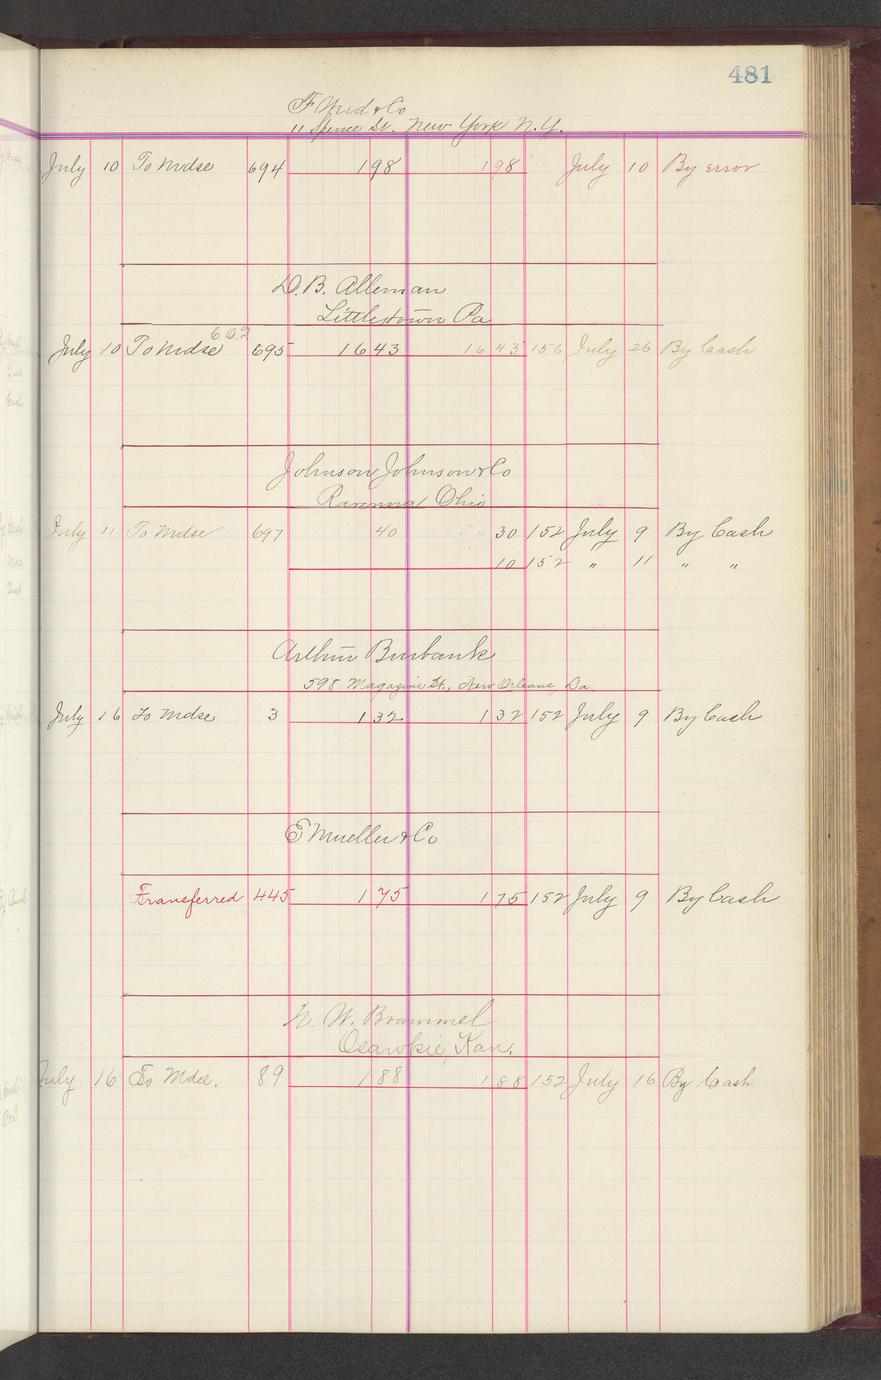 481
F Weed & Co
11 Spruce St. New York N.Y.
July 10 To Mdse 694 198 198 July 10 By error
D. B. Alleman
Littlestown Pa
July 10 To Mdse 602 695 1643 1643 156 July 26 By Cash
Johnson Johnson & Co
Ravenna Ohio
July 11 To Mdse 697 40 30 152 July 9 By Cash
10 152 " 11 " "
Arthur Burbank
598 Magazine St., New Orleans, La.
July 16 To Mdse 3 132 132 152 July 9 By Cash
E Mueller & Co
Transferred 445 175 175 152 July 9 By Cash
W. Brammel
Osawkie, Kan.
July 16 To Mdse. 89 188 188 152 July 16 By Cash